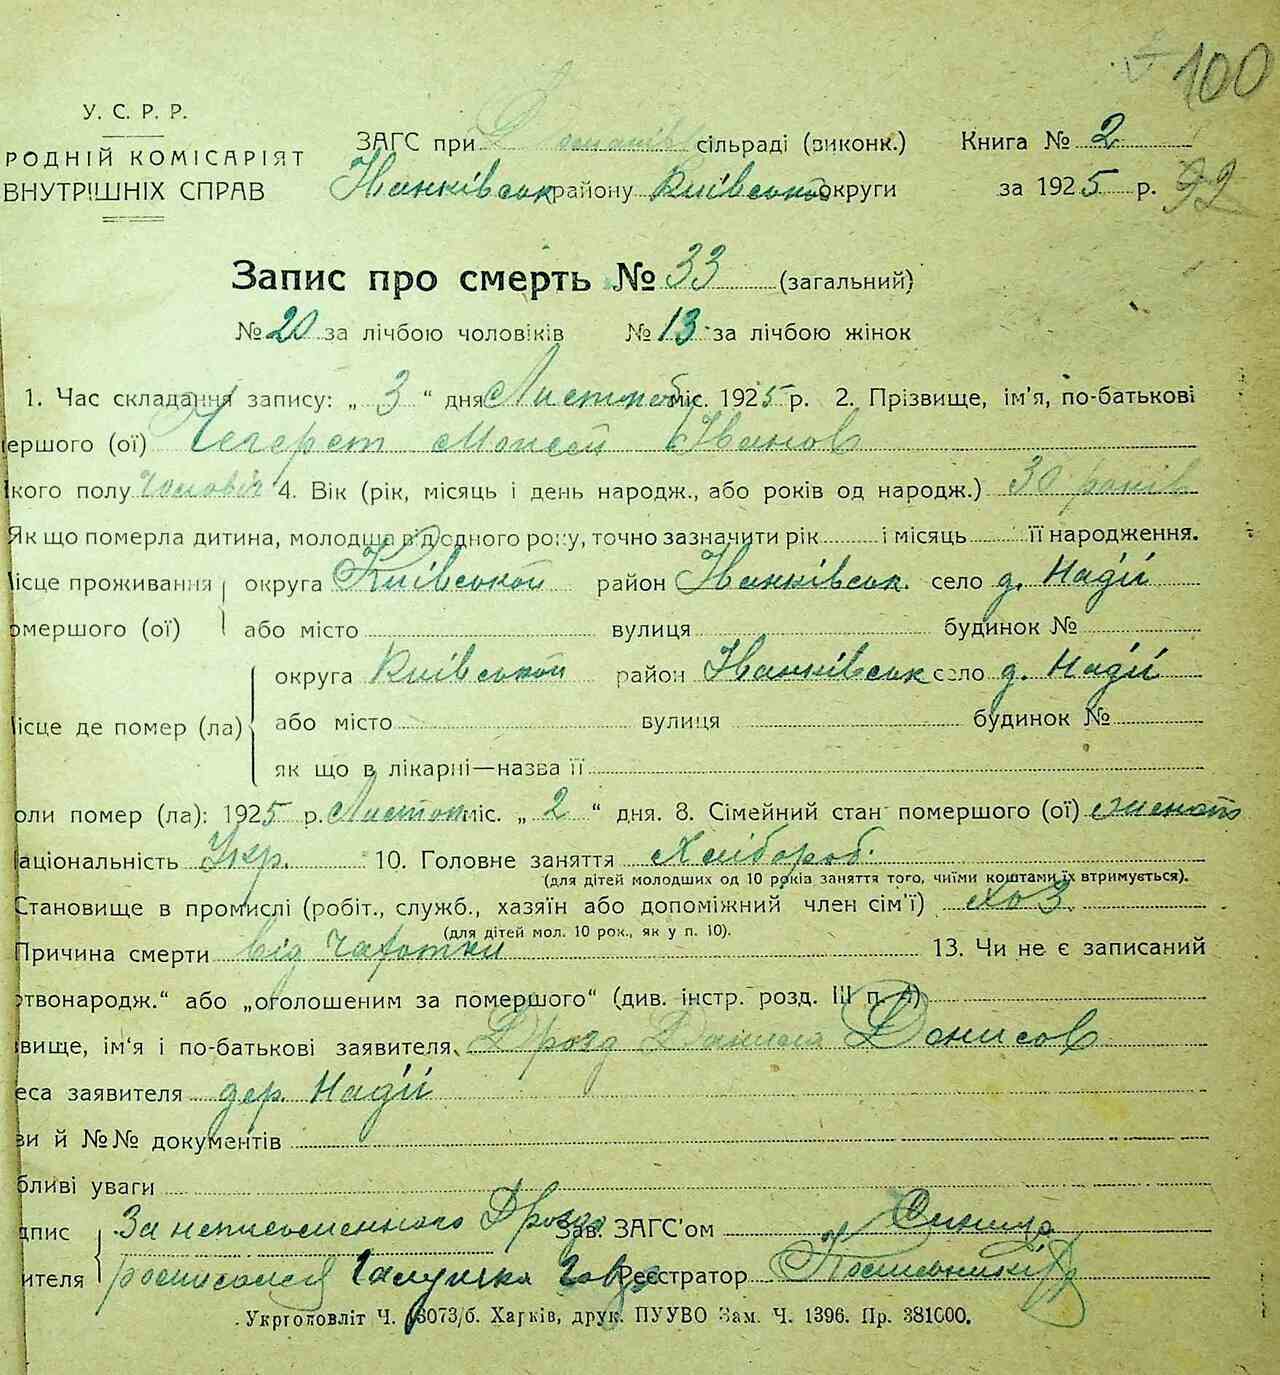 100
У. С. Р. Р.
РОДНІЙ КОМІСАРІЯТ
ВНУТРІШНІХ СПРАВ
ЗАГС при сільраді (виконк.) Книга № 2
Іванківськ району Київської округи за 1925 р. 92
Запис про смерть № 33 (загальний)
№ 20 за лічбою чоловіків № 13 за лічбою жінок
1. Час складання запису: „ 3 “ дня Листопад міс. 1925 р. 2. Прізвище, ім'я, по-батькові
ершого (ої) Мойсей Іванов
кого полу чоловіч 4. Вік (рік, місяць і день народж., або років од народж.) 30 років
Як що померла дитина, молодща від одного року, точно зазначити рік і місяць її народження.
ісце проживання округа Київської район Іванківськ. село д. Надії
омершого (ої) або місто вулиця будинок №
округа Київської район Іванківськ село д. Надії
ісце де помер (ла) або місто вулиця будинок №
як що в лікарні—назва її
оли помер (ла): 1925 р. Листопад міс. „ 2 “ дня. 8. Сімейний стан помершого (ої) женать
аціональність Укр. 10. Головне заняття Хлібороб.
(для дітей молодших од 10 років заняття того, чиїми коштами їх втримується).
Становище в промислі (робіт., служб., хазяїн або допоміжний член сім'ї) хоз.
(для дітей мол. 10 рок., як у п. 10).
Причина смерти від чахотки 13. Чи не є записаний
ртвонародж.“ або „оголошеним за помершого“ (див. інстр. розд. III п. )
звище, ім'я і по-батькові заявителя Дрозд Данила Денисов
еса заявителя дер. Надії
зи й №№ документів
бливі уваги
дпис За неписьменного Дрозда Зав. ЗАГС'ом
ителя росписался Галушка Реєстратор
Укрголовліт Ч. 3073/б. Харків, друк. ПУУВО Зам. Ч. 1396. Пр. 381000.